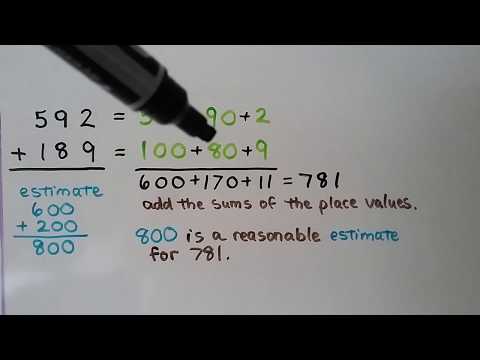 592 = 90+2
+ 189 = 100+80+9
600+170+11=781
estimate
600
+ 200
800
add the sums of the place values.
800 is a reasonable estimate
for 781.